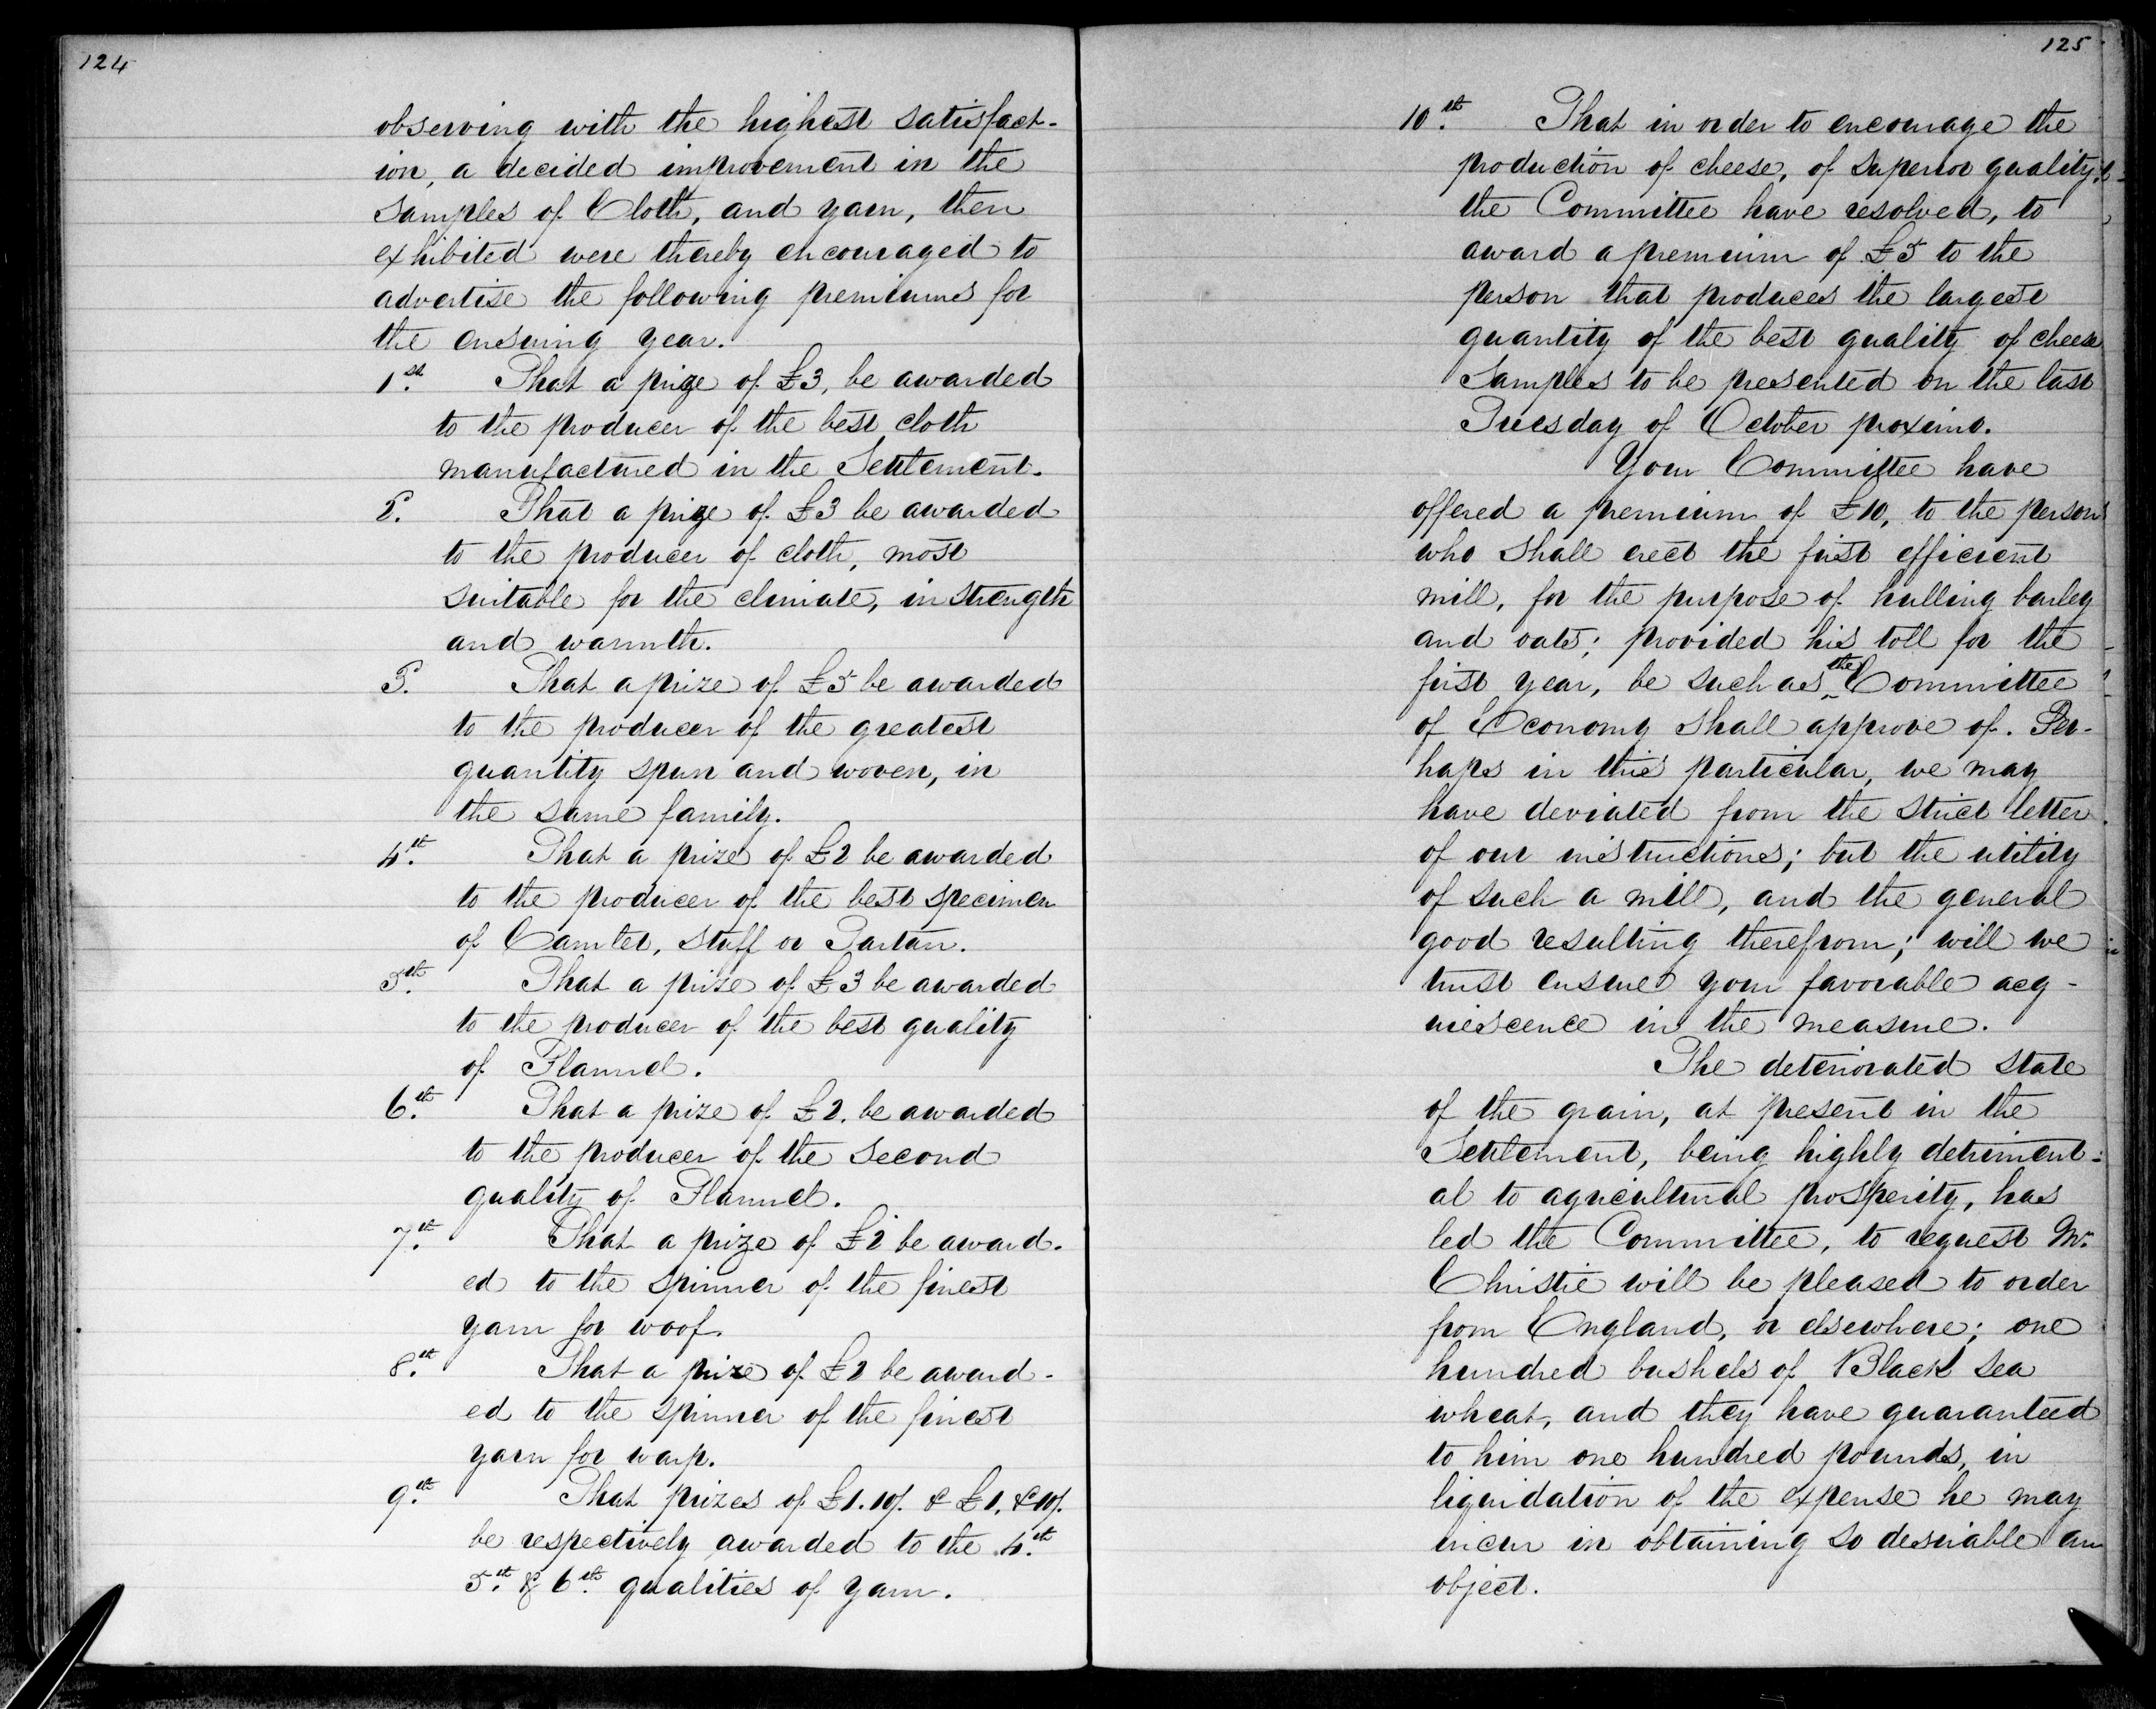 124
observing with the highest satisfact-
ion, a decided improvement in the
samples of Cloth, and yarn, then
exhibited were thereby encouraged to
advertise the following premiums for
the ensuing year.
1st. That a prize of £3, be awarded
to the producer of the best cloth
manufactured in the Settlement.
2. That a prize of £3 be awarded
to the producer of cloth, most
suitable for the climate, in strength
and warmth.
3. That a prize of £5 be awarded
to the producer of the greatest
quantity spun and woven, in
the same family.
4th. That a prize of £2 be awarded
to the producer of the best specimen
of Camlet, Stuff or Tartan.
5th. That a prize of £3 be awarded
to the producer of the best quality
of Flannel.
6th. That a prize of £2. be awarded
to the producer of the second
quality of Flannel.
7th. That a prize of £2 be award-
ed to the spinner of the finest
yarn for woof.
8th. That a prize of £2 be award-
ed to the spinner of the finest
yarn for warp.
9th. That prizes of £1.10/. & £1, & 10/.
be respectively awarded to the 4th.
5th. & 6th. qualities of yarn.
125
10th. That in order to encourage the
production of cheese, of superior quality,
the Committee have resolved, to
award a premium of £5 to the
person that produces the largest
quantity of the best quality of cheese
Samples to be presented on the last
Tuesday of October proximo.
Your Committee have
offered a premium of £10, to the person
who shall erect the first efficient
mill, for the purpose of hulling barley
and oats; provided his toll for the
first year, be such as the Committee
of Economy shall approve of. Per-
haps in this particular, we may
have deviated from the strict letter
of our instructions; but the utility
of such a mill, and the general
good resulting therefrom; will we
trust ensure your favorable acq-
uiescence in the measure.
The deteriorated state
of the grain, at present in the
Settlement, being highly detriment-
al to agricultural prosperity, has
led the Committee, to request Mr.
Christie will be pleased to order
from England, or elsewhere; one
hundred bushels of Black sea
wheat, and they have guaranteed
to him one hundred pounds, in
liquidation of the expense he may
incur in obtaining so desirable an
object.